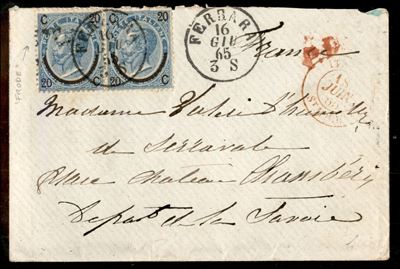 20 C 20 C
20 C 20 C
FERRARA
16
GIU
65
3 S
France
P.D.
JUIN
"FRODE"
Madame
de Serravale
Place château Chambéry
Départ de la Savoie